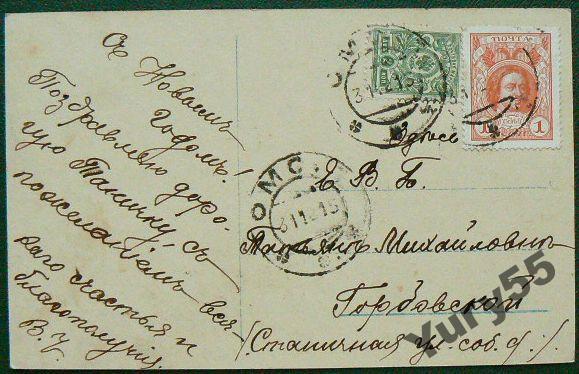 Съ Новымъ
Годомъ!
Поздравляю доро-
гую Таничку, съ
пожеланіемъ вся-
каго счастья и
благополучія.
В. У.
ПОЧТА
1 1
ОМСКЪ
ОМСКЪ
31 12 15
Здѣсь
Е. В. Б.
Татьянѣ Михайловнѣ
Горбовской
/Станичная ул. соб. д./
Yury55